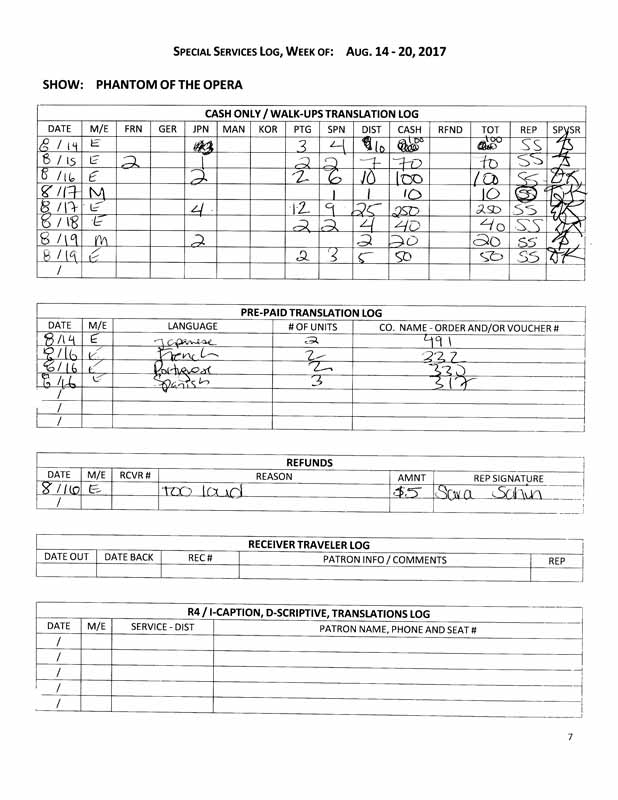 SPECIAL SERVICES LOG, WEEK OF: AUG. 14 - 20, 2017
SHOW: PHANTOM OF THE OPERA
CASH ONLY / WALK-UPS TRANSLATION LOG
DATE M/E FRN GER JPN MAN KOR PTG SPN DIST CASH RFND TOT REP SPVSR
8/14 E 3 3 4 10 100 100 SS
8/15 E 2 1 2 2 7 70 70 SS
8/16 E 2 2 6 10 100 100 SS DK
8/17 M 1 1 10 10 SS DK
8/17 E 4 12 9 25 250 250 SS DK
8/18 E 2 2 4 40 40 SS DK
8/19 M 2 2 20 20 SS
8/19 E 2 3 5 50 50 SS DK
/
PRE-PAID TRANSLATION LOG
DATE M/E LANGUAGE # OF UNITS CO. NAME - ORDER AND/OR VOUCHER #
8/14 E Japanese 2 491
8/16 E French 2 332
8/16 E Portugese 2 330
8/16 E Spanish 3 317
/
/
/
REFUNDS
DATE M/E RCVR # REASON AMNT REP SIGNATURE
8/16 E too loud $5 Sara
/
RECEIVER TRAVELER LOG
DATE OUT DATE BACK REC # PATRON INFO / COMMENTS REP
R4 / I-CAPTION, D-SCRIPTIVE, TRANSLATIONS LOG
DATE M/E SERVICE - DIST PATRON NAME, PHONE AND SEAT #
/
/
/
/
/
7